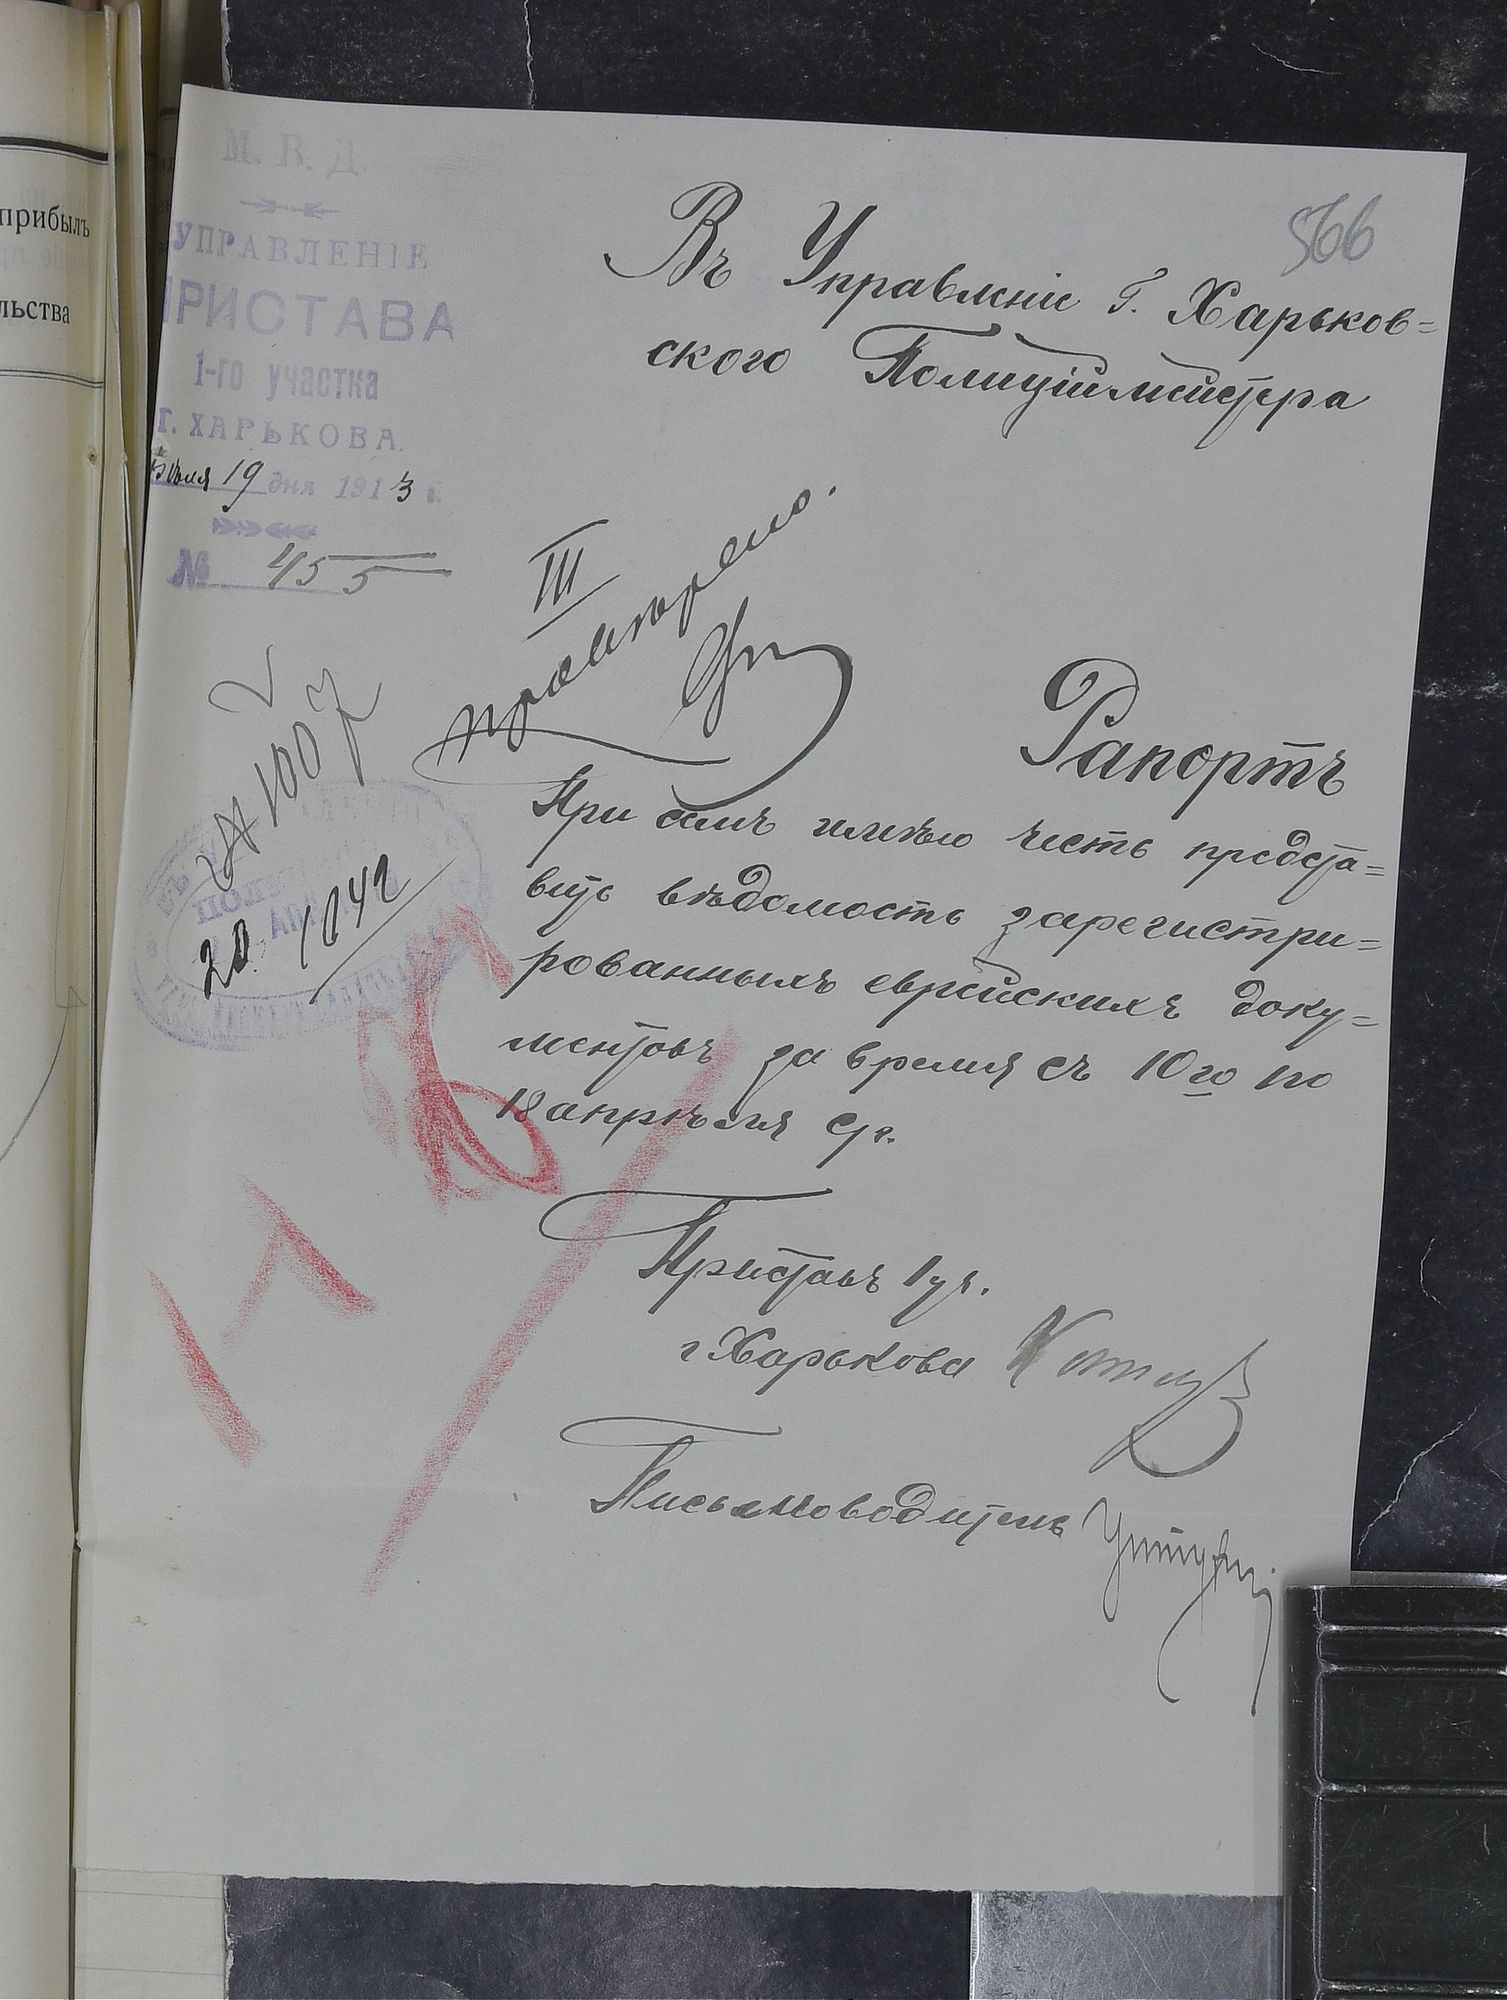 прибылъ
льства
М. В. Д.
УПРАВЛЕНІЕ
ПРИСТАВА
1-го участка
Г. ХАРЬКОВА.
19 дня 1913 г.
№ 455
566
Въ Управленіе Г. Харьков=
ского Полиціймейстера
III
№ 1007
20. 1042
Рапортъ
При семъ имѣю честь предста=
вить вѣдомость зарегистри=
рованныхъ еврейскихъ доку=
ментовъ за время съ 10го по
18 апрѣля с/г.
Приставъ 1 уч.
г. Харькова
Письмоводитель